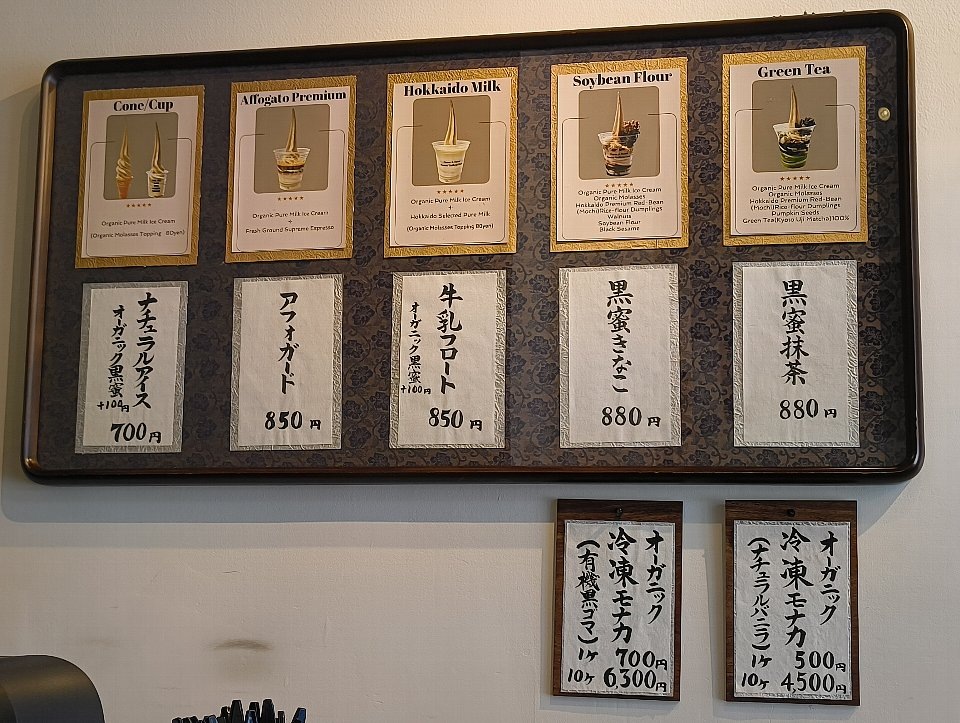 Cone/Cup
★★★★★
Organic Pure Milk Ice Cream
(Organic Molasses Topping 80yen)
Affogato Premium
★★★★★
Organic Pure Milk Ice Cream
+
Fresh Ground Supreme Espresso
Hokkaido Milk
★★★★★
Organic Pure Milk Ice Cream
+
Hokkaido Selected Pure Milk
(Organic Molasses Topping 80yen)
Soybean Flour
★★★★★
Organic Pure Milk Ice Cream
Organic Molasses
Hokkaido Premium Red-Bean
(Mochi)Rice-flour Dumplings
Walnuts
Soybean Flour
Black Sesame
Green Tea
★★★★★
Organic Pure Milk Ice Cream
Organic Molasses
Hokkaido Premium Red-Bean
(Mochi)Rice-flour Dumplings
Pumpkin Seeds
Green Tea(Kyoto Uji Matcha)100%
ナチュラルアイス
オーガニック黒蜜
+100円
700円
アフォガード
850円
牛乳フロート
オーガニック黒蜜
+100円
850円
黒蜜きなこ
880円
黒蜜抹茶
880円
オーガニック
冷凍モナカ
(有機黒ゴマ)
1ヶ 700円
10ヶ 6,300円
オーガニック
冷凍モナカ
(ナチュラルバニラ)
1ヶ 500円
10ヶ 4,500円